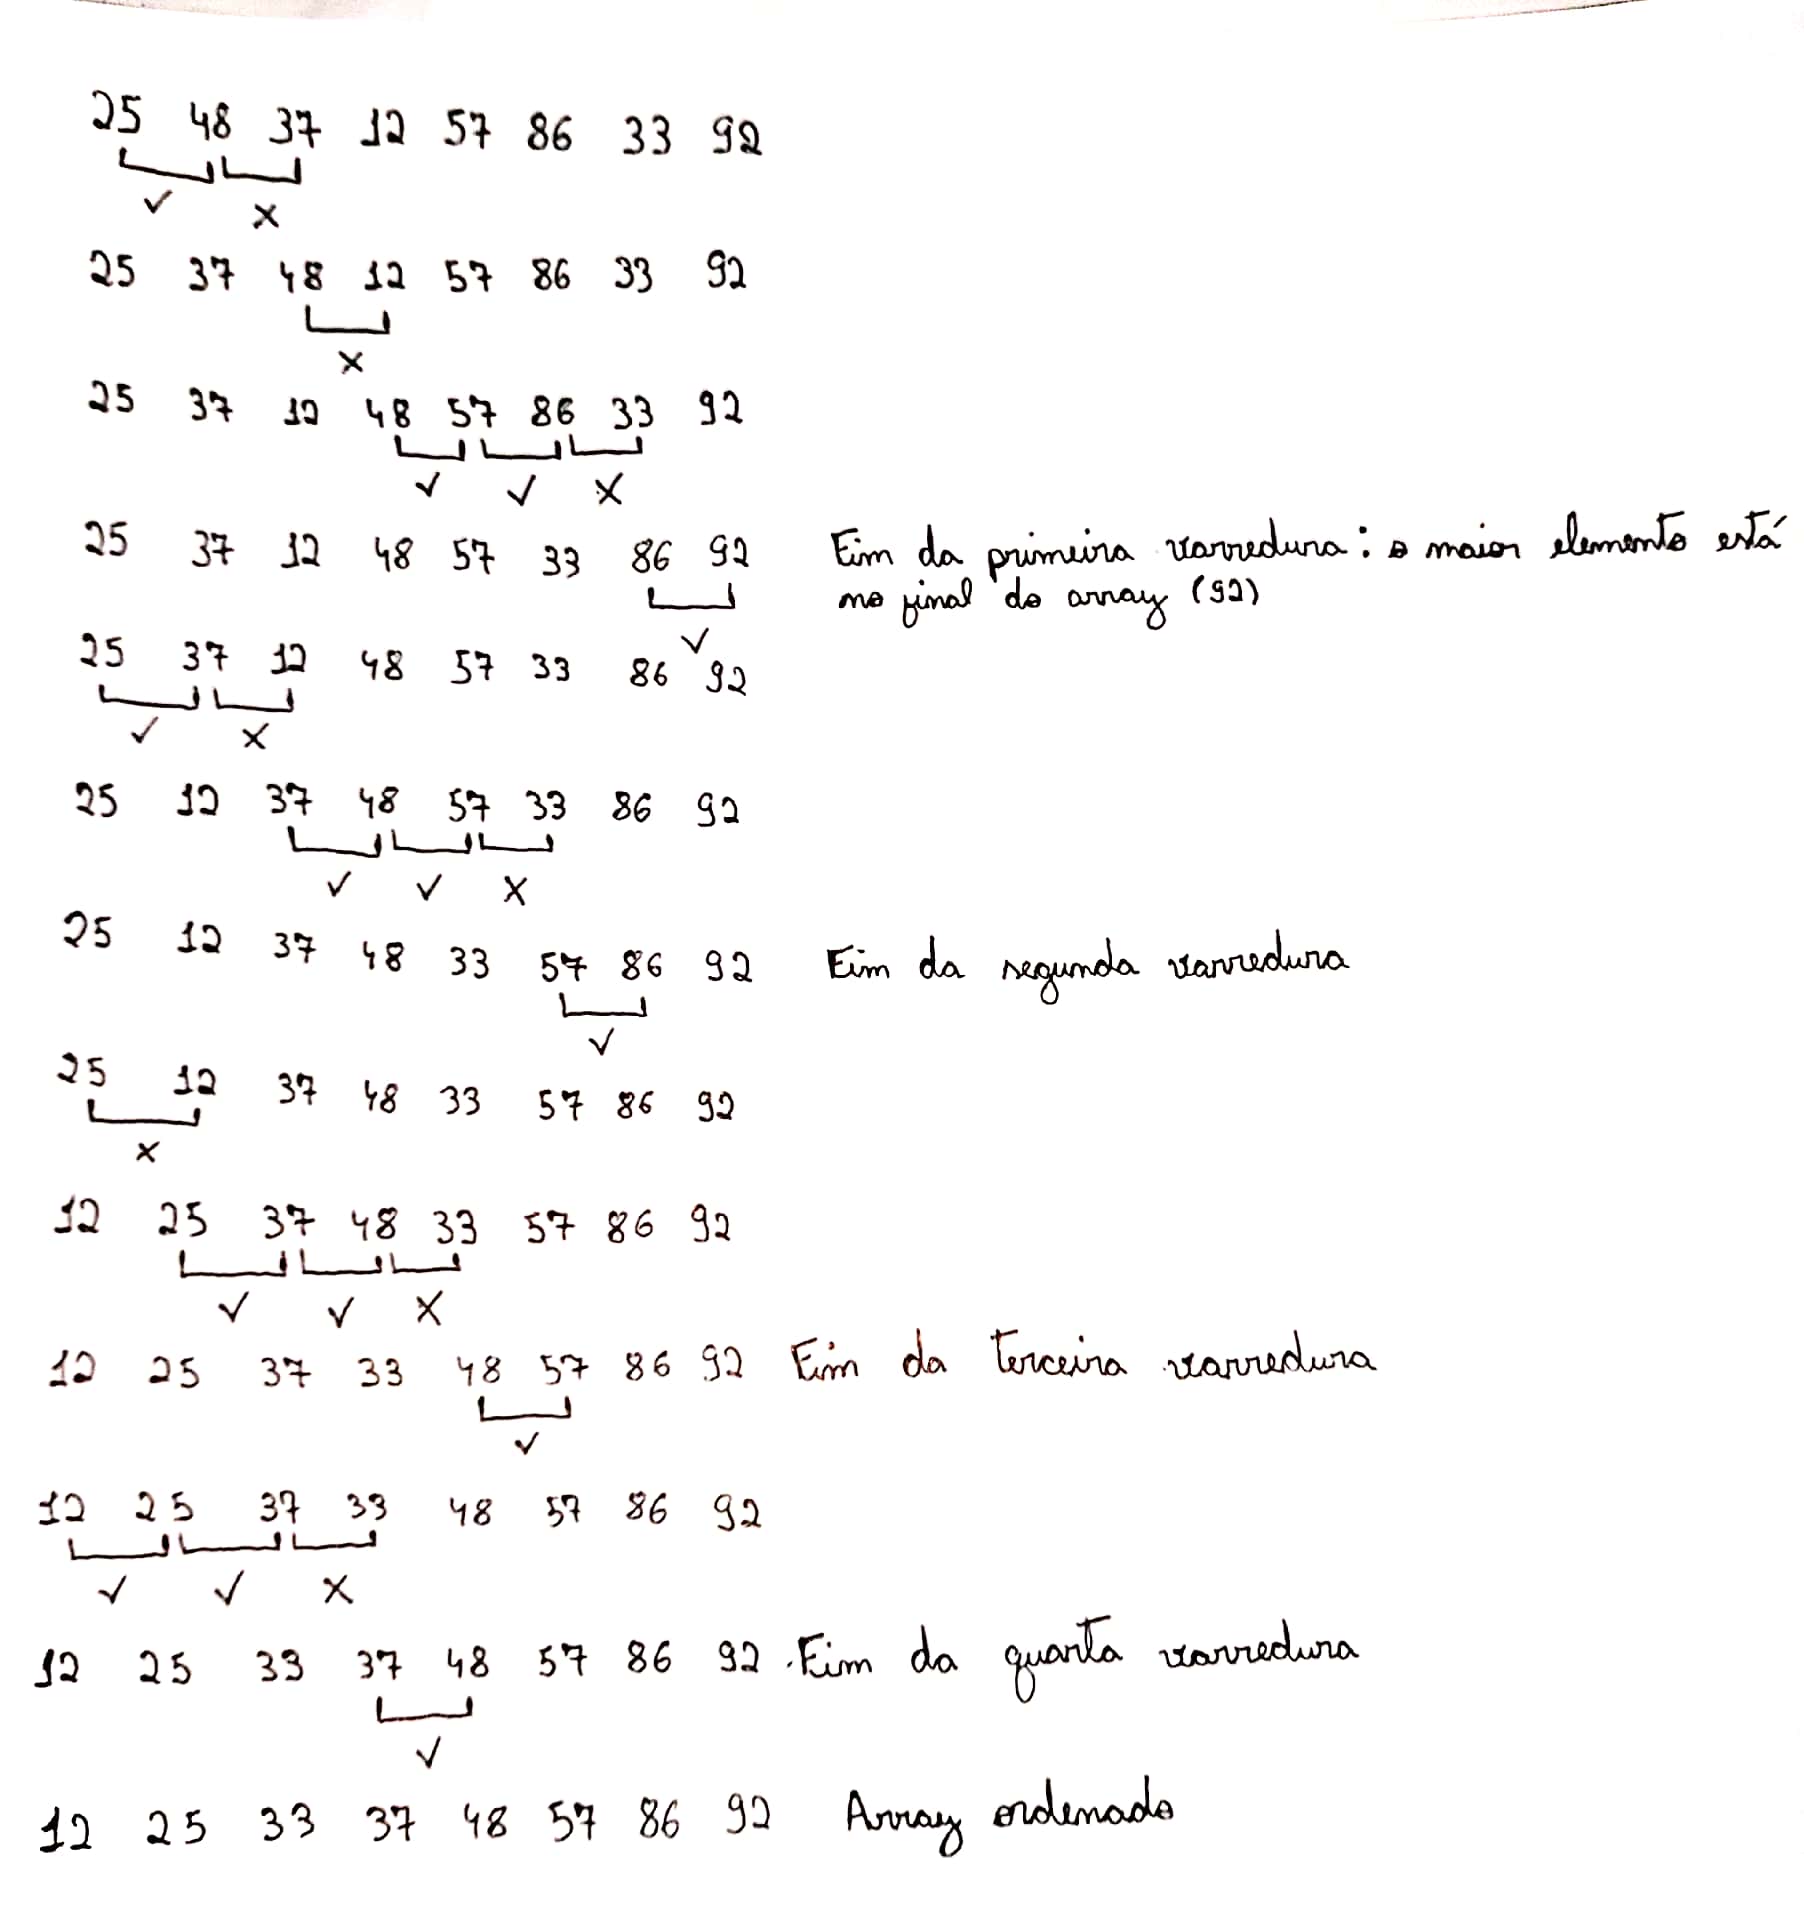 25 48 37 12 57 86 33 92
✓ x
25 37 48 12 57 86 33 92
x
25 37 12 48 57 86 33 92
✓ ✓ x
25 37 12 48 57 33 86 92 Fim da primeira varredura: o maior elemento está
no final do array (92)
✓
25 37 12 48 57 33 86 92
✓ x
25 12 37 48 57 33 86 92
✓ ✓ x
25 12 37 48 33 57 86 92 Fim da segunda varredura
✓
25 12 37 48 33 57 86 92
x
12 25 37 48 33 57 86 92
✓ ✓ x
12 25 37 33 48 57 86 92 Fim da terceira varredura
✓
12 25 37 33 48 57 86 92
✓ ✓ x
12 25 33 37 48 57 86 92 Fim da quarta varredura
✓
12 25 33 37 48 57 86 92 Array ordenado